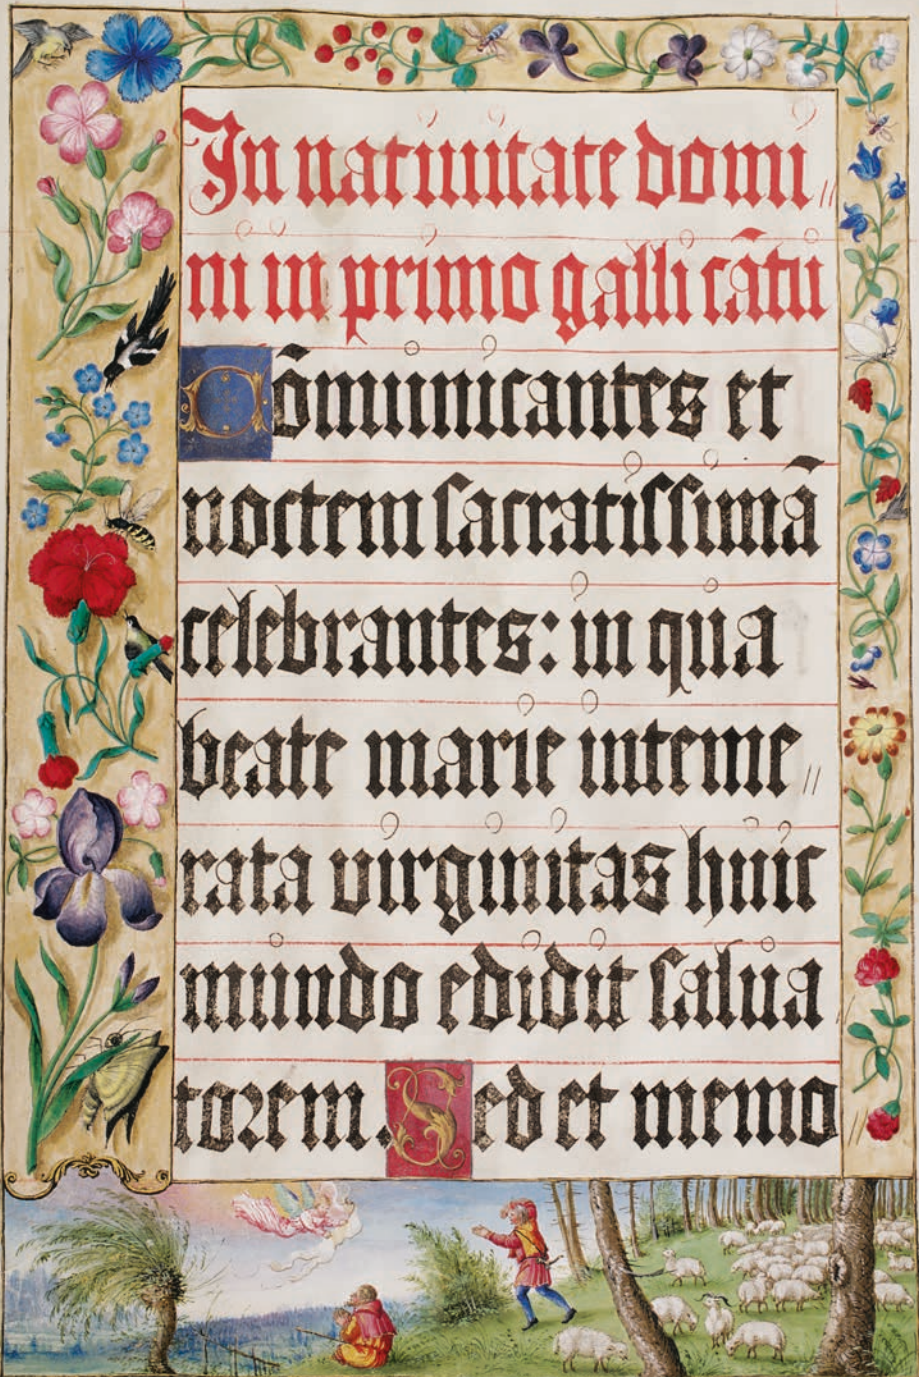 In natiuitate domi//
ni in primo galli cātu
Cōmunicantes et
noctem sacratissimā
celebrantes: in qua
beate marie inteme//
rata virginitas huic
mundo edidit salua
torem. Sed et memo//